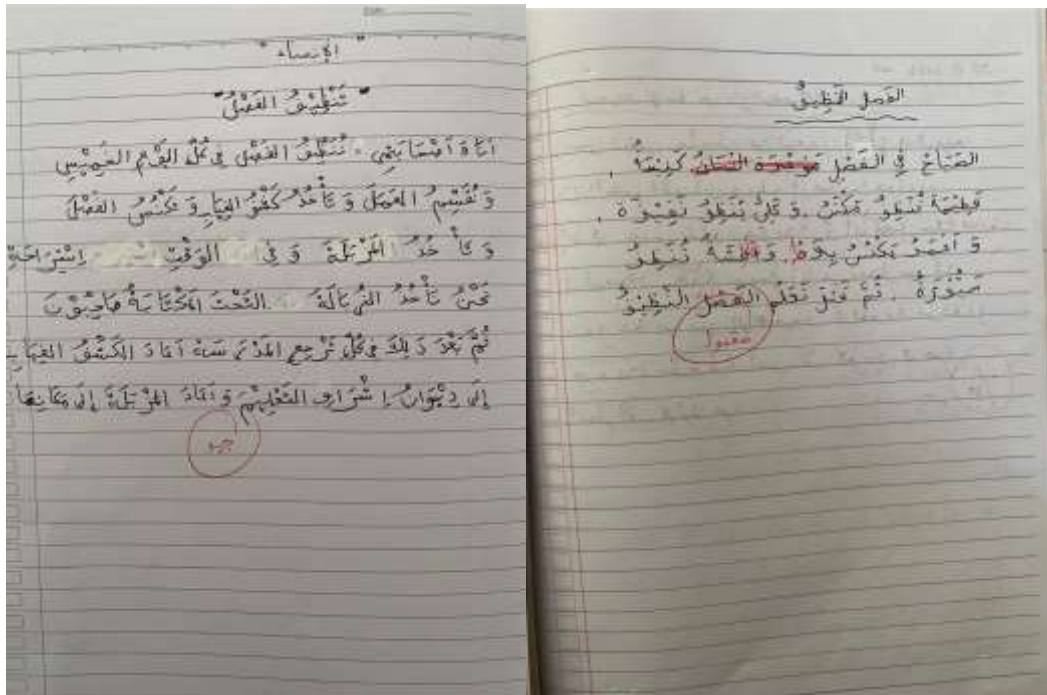 " الإنساء "
" تَنْظِيْفُ الفَصْلُ "
أنَا وَ أَصْحَابَتِي . نُنَظِّفُ الفَصْل فِي كُلِّ اليَوْمِ الخَمِيْسِ
وَ نُقَسِّمُ العَمَلَ وَ نَأْخُذُ كَشْفُ الغِيَابِ وَ نَكْنُسُ الفَصْلَ
وَ نَأْخُذُ المَزْبَلَةَ وَ فِي الوَقْتِ اِسْتِرَاحَةِ
نَحْنُ نَأْخُذُ الزُّبَالَةَ التَحْتَ المَكْتَابَةُ
ثُمَّ بَعْدَ ذَلِكَ تَرْجِعِ المَدْرَسَة الكَشْفُ الغِيَابِ
إِلَى دِيْوَانُ اِشْرَافِ التَعْلِيْمِ وَ المَزْبَلَةَ إِلَى مَكَانِهَا
جيد
الفَصلِ النَّظِيْفُ
الصَبَاحْ فِي الفَصْلِ
فَطِيْمَة تُنَظِّفُ مَكْتَبُ . وَ عَلِيُّ يُنَظِّفُ
وَ أحْمَدُ يَكْنُسُ بِلَاطُ . وَ تُنَظِّفُ
سَبُّوْرَةُ . ثُمَّ الفَصْلُ النَّظِيْفُ